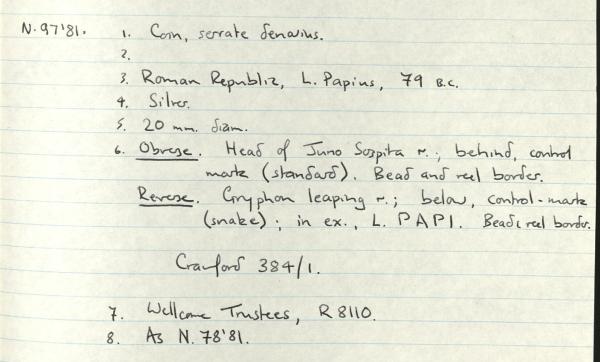 N.97'81. 1. Coin, serrate denarius.
2.
3. Roman Republic, L. Papius, 79 B.C.
4. Silver.
5. 20 mm. diam.
6. Obverse. Head of Juno Sospita r.; behind, control
mark (standard). Bead and reel border.
Reverse. Gryphon leaping r.; below, control-mark
(snake); in ex., L. PAPI. Bead & reel border.
Crawford 384/1.
7. Wellcome Trustees, R 8110.
8. As N.78'81.